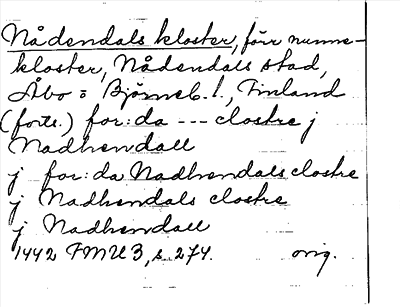 Nådendals kloster, förr nunne-
kloster, Nådendals stad,
Åbo o Björneb. l., Finland
(forts.) for: da --- clostre j
Nadhendall
j for: da Nadhendals clostre
j Nadhendals clostre
j Nadhendall
1442 FMU 3, s. 274. orig.